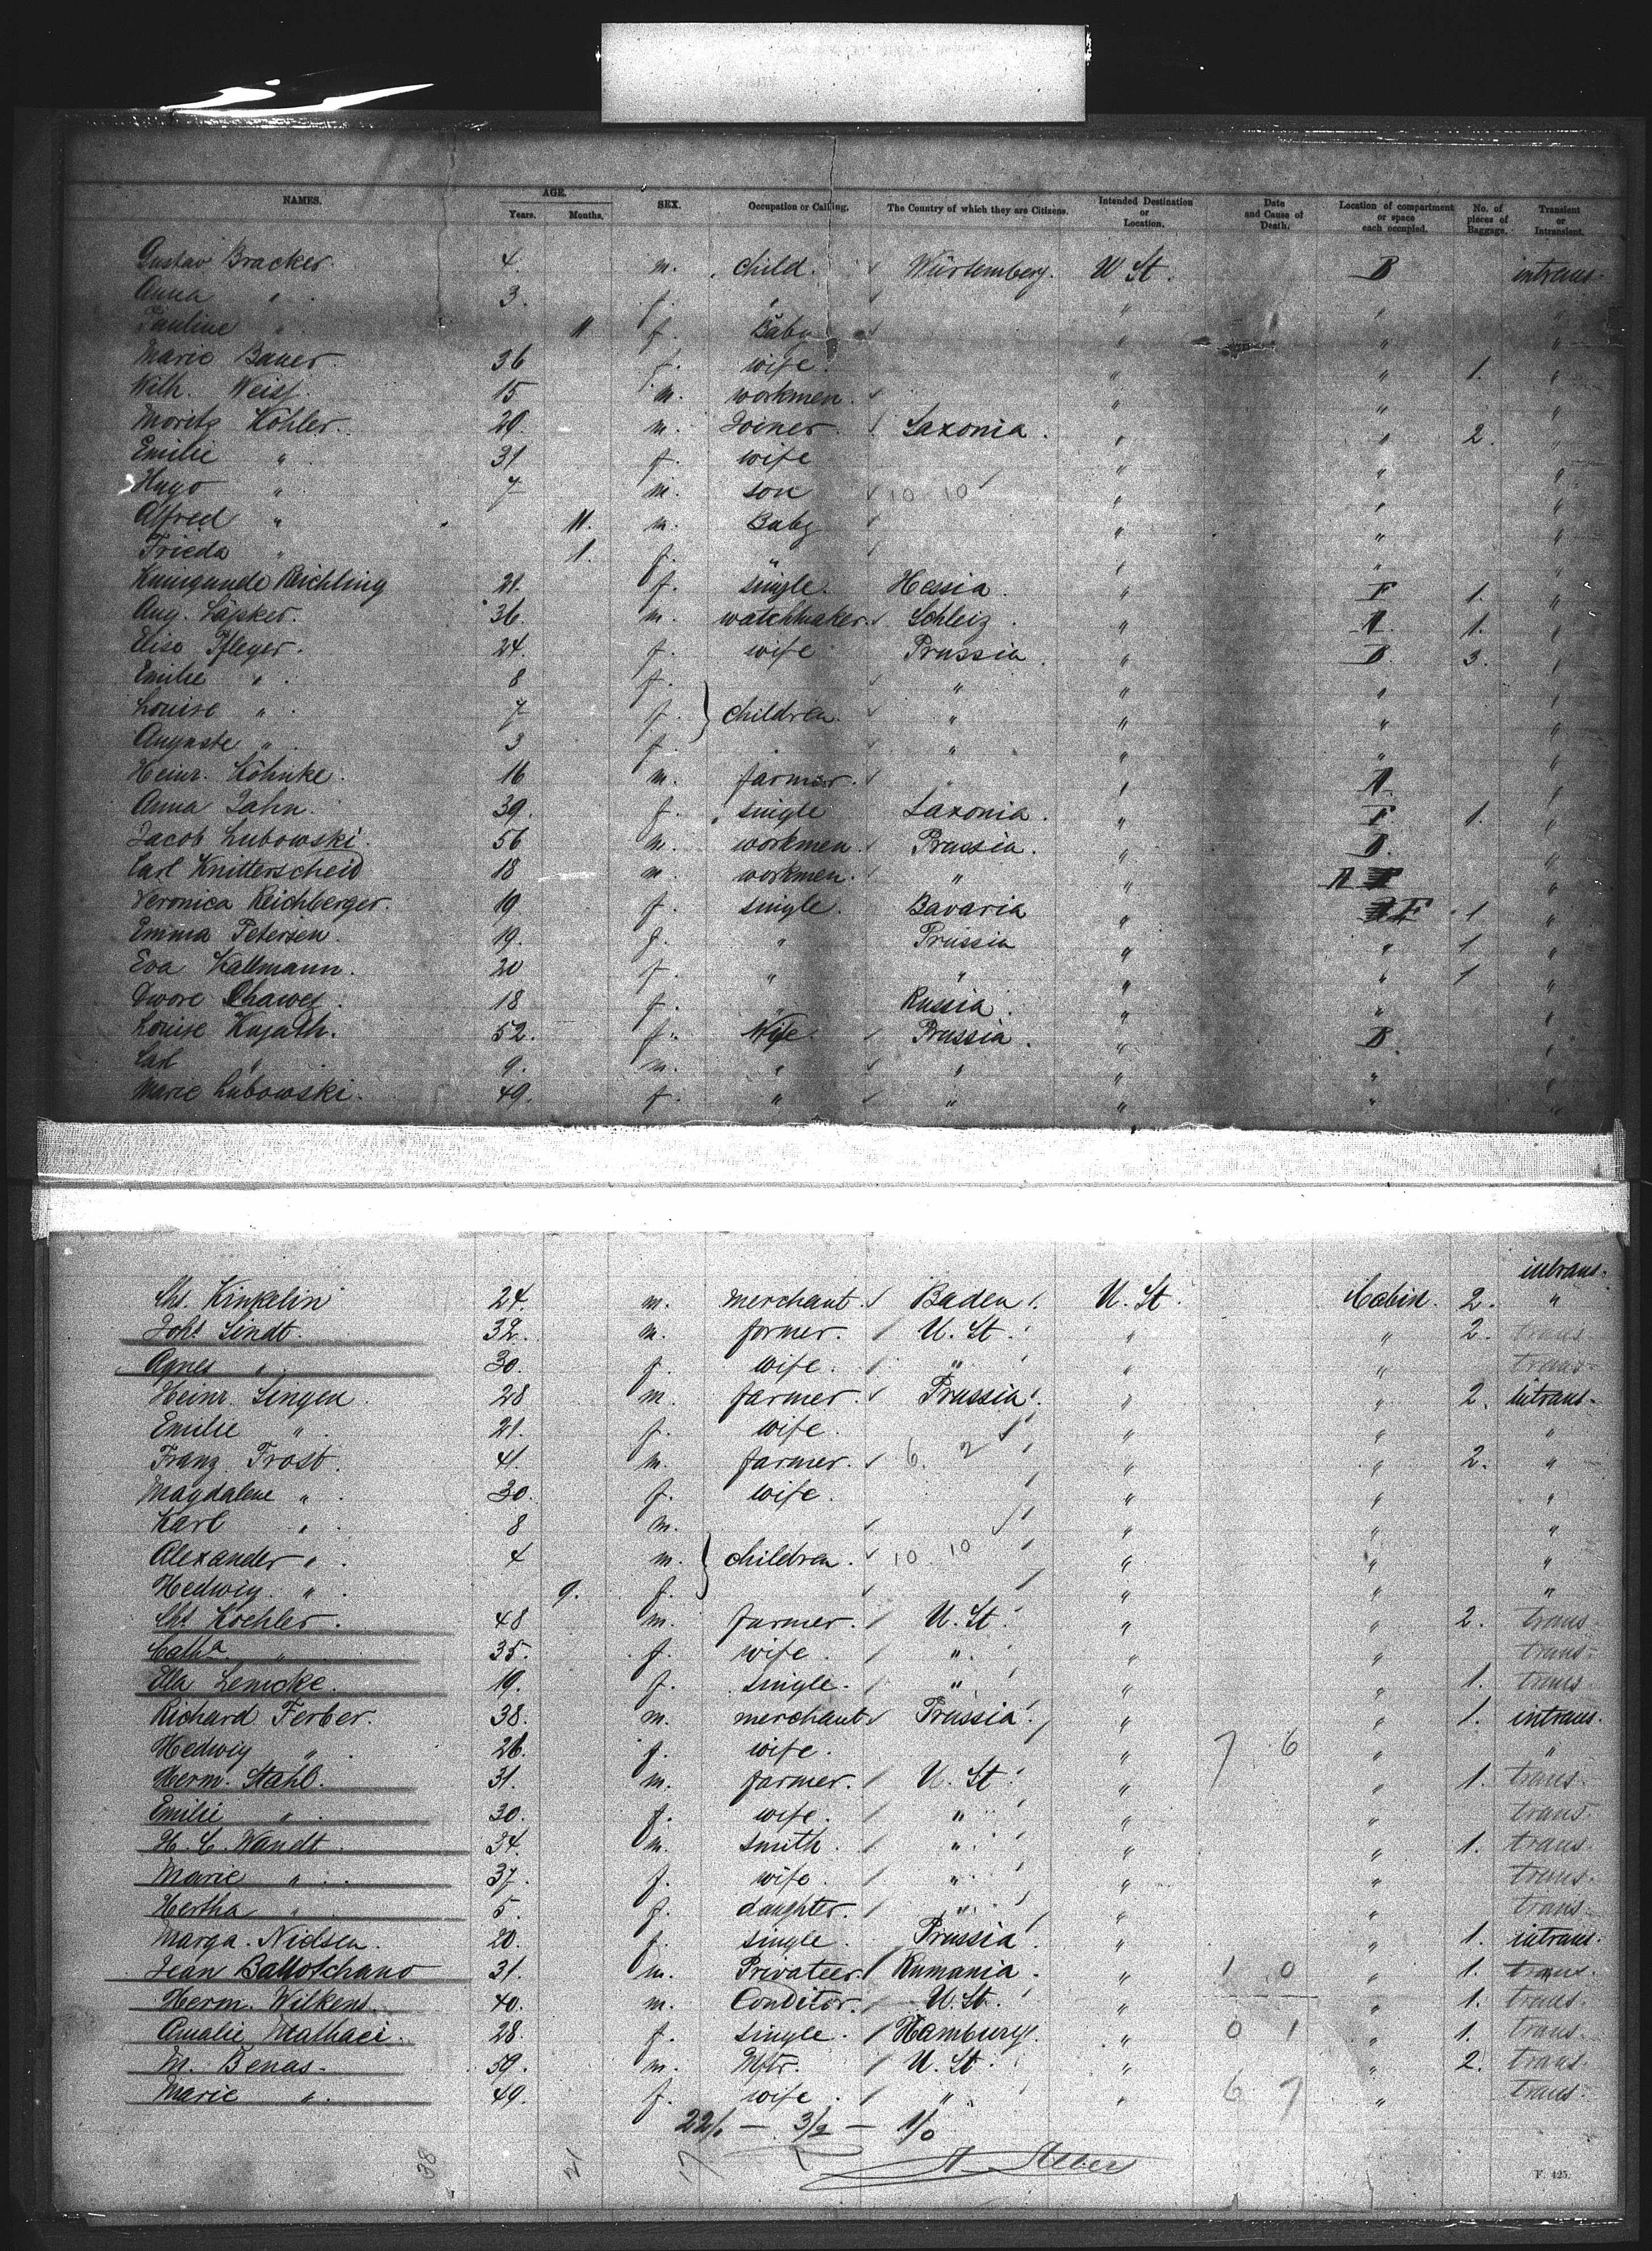 NAMES. AGE. Years. Months. SEX. Occupation or Calling. The Country of which they are Citizens. Intended Destination or Location. Date and Cause of Death. Location of compartment or space each occupied. No. of pieces of Baggage. Transient or Intransient.
Gustav Bracker. 4. m. child. Würtemberg. U St. B intrans.
Anna " 3. f. " " " "
Pauline " 11 f. Baby " " "
Marie Bauer. 36 f. wife. " " 1. "
Wilh. Weiss. 15 m. workmen. " " "
Moritz Köhler. 29. m. Joiner. Saxonia. " " 2. "
Emilie " 31 f. wife " " "
Hugo " 7 m. son 10 10 " " "
Alfred " 11. m. Baby " " "
Frieda " 1. f. " " " "
Kunigunde Reichling 21. f. single. Hessia. " F 1. "
Aug. Läpker. 36. m. watchmaker. Schleiz. " A. 1. "
Elise Pfleger. 24. f. wife Prussia. " B. 3. "
Emilie " 8 f. " " " "
Louise " 7 f. children. " " " "
Auguste " 3 f. " " " "
Heinr. Köhnke. 16 m. farmer. " " A. "
Anna Jahn. 39. f. single Saxonia. " F 1. "
Jacob Lubowski. 56 m. workmen. Prussia. " B. "
Carl Knitterscheid 18 m. workmen. " " A "
Veronica Reichberger. 19 f. single. Bavaria " F 1 "
Emma Petersen. 19. f. " Prussia " " 1 "
Eva Kallmann. 20 f. " " " " 1 "
Dwore Chawes. 18 f. " Russia. " " "
Louise Kujath. 52. f. Wife. Prussia. " B. "
Carl " 9. m. " " " " "
Marie Lubowski. 49. f. " " " " "
intrans.
Chs. Kinkelin 24. m. merchant. Baden. U. St. Cabin. 2. "
Johs Lindt. 32. m. farmer. U. St. " " 2. trans
Agnes " 30. f. wife. " " " trans
Heinr. Singen 28 m. farmer. Prussia. " " 2. intrans.
Emilie " 21. f. wife. " " "
Franz Frost. 41. m. farmer. 6. 2 " " 2. "
Magdalene " 30. f. wife. " " "
Karl " 8 m. " " "
Alexander " 4 m. children. 10 10 " " "
Hedwig " 9. f. " " "
Chs. Koehler. 48 m. farmer. U. St. " " 2. trans
Catha " 35. f. wife. " " " trans.
Ella Lemcke. 19. f. single. " " " 1. trans
Richard Ferber. 38. m. merchant Prussia. " " 1. intrans.
Hedwig " 26. f. wife. " 7 6 " "
Herm. Stahl. 31. m. farmer. U. St. " " 1. trans.
Emilie " 30. f. wife. " " " trans
H. C. Wandt. 34. m. smith. " " " 1. trans
Marie " 37. f. wife. " " " trans.
Hertha " 5. f. daughter. " " " trans.
Marga. Nielsen. 20. f. single. Prussia. " " 1. intrans.
Jean Ballotschano 31. m. Privateer. Rumania. " 1 0 " 1. trans.
Herm. Wilkens. 40. m. Conditor. U. St. " " 1. trans.
Amalie Mathaei. 28. f. single. Hamburg. " 0 1 " 1. trans.
M. Benas. 59. m. Mftr. U. St. " " 2. trans.
Marie " 49. f. wife. " " 6 7 " trans.
22/1 — 3/2 — 1/0
38 21 17
F. 425.